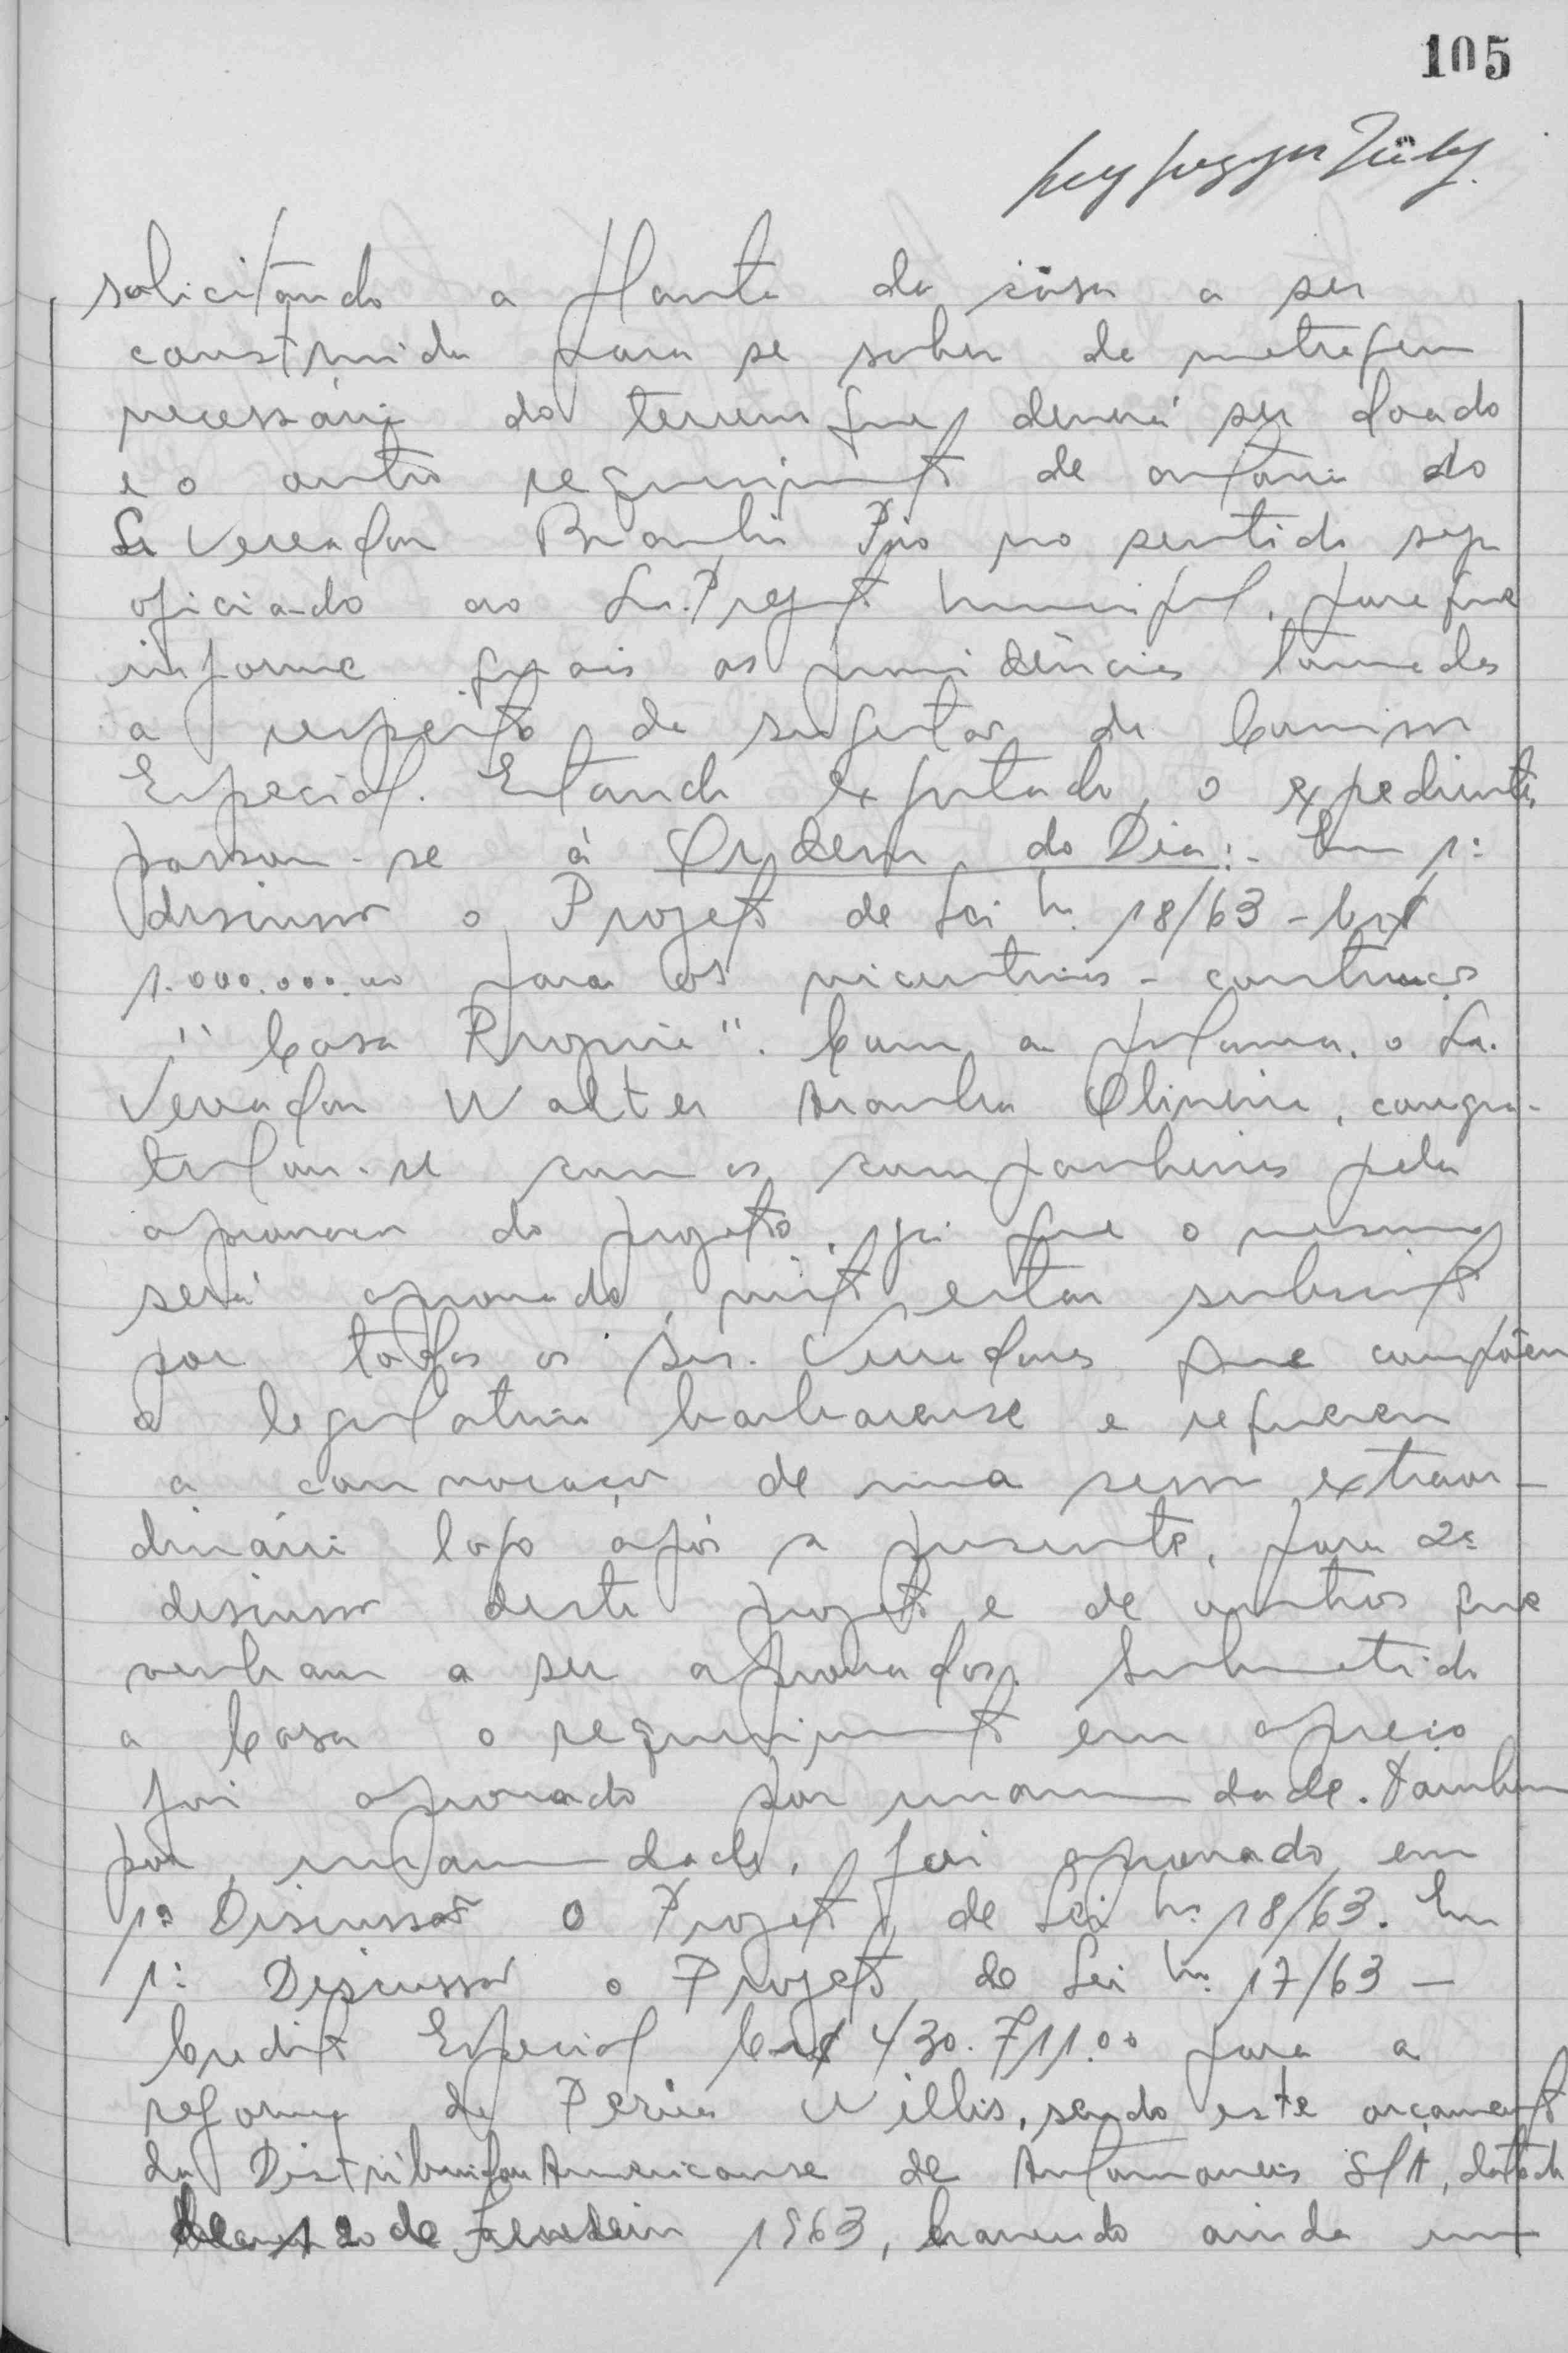 105
solicitando a planta da casa a ser
construida para se saber da metragem
necessária do terreno que deverá ser doado
e o outro requerimento de autoria do
Sr Vereador Braulio Pio no sentido seja
oficiado ao Sr. Prefeito Municipal, para que
informe quais as providências tomadas
a respeito da sugestão da Comissão
Especial. Estando esgotado o expediente,
passou-se á Ordem do Dia:- Em 1ª
discussão o Projeto de Lei nº 18/63 - Cr$
1.000.000,00 para os vicentinos - construção
"Casa Propria". Com a palavra, o Sr.
Vereador Walter Aranha Oliveira, congra-
tulou-se com os companheiros pela
aprovação do projeto, já que o mesmo
será aprovado, visto estar subscrito
por todos os Srs. Vereadores que compõem
a legislatura barbarense e requereu
a convocação de uma sessão extraor-
dinária logo após a presente, para 2ª
discussão deste projeto e de outros que
venham a ser aprovados. Submetido
a Casa o requerimento em apreço
foi aprovado por unanimidade. Também
por unanimidade, foi aprovado em
1ª Discussão o Projeto de Lei nº 18/63. Em
1ª Discussão o Projeto de Lei nº 17/63 -
Credito Especial Cr$ 430.711,00 para a
reforma da Perua Willis, sendo este orçamento
da Distribuidora Americanse de Automoveis S/A, datado
de 20 de Fevereiro 1963, havendo ainda um